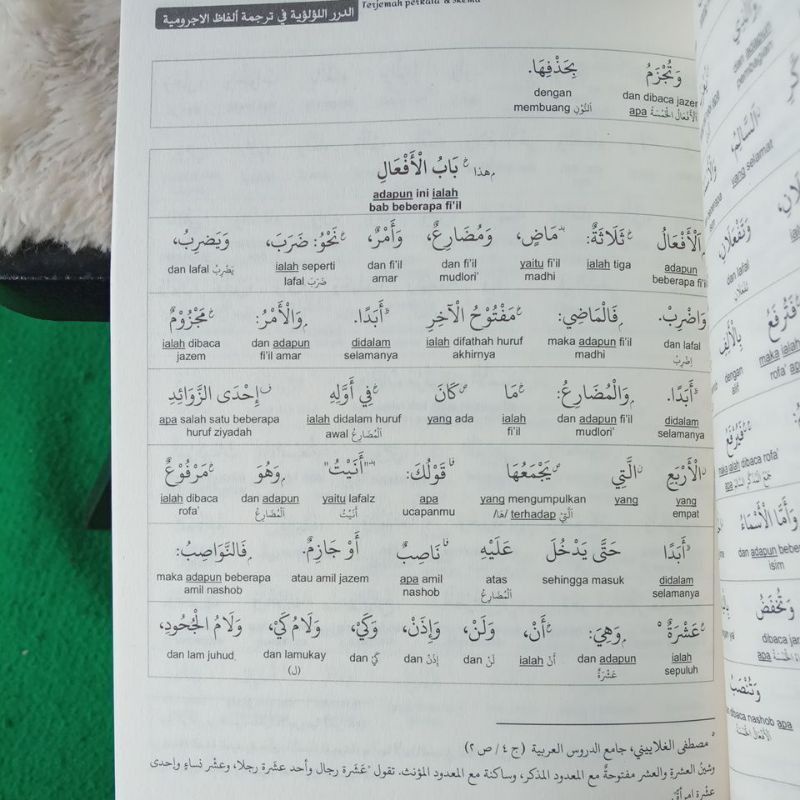 الدرر اللؤلؤية في ترجمة ألفاظ الاجرومية Terjemah perkata & skema
وَتُجْزَمُ بِحَذْفِهَا.
dan dibaca jazem apa الْأَفْعَالُ الْخَمْسَةُ dengan membuang النُّوْنِ
هذا بَابُ الْأَفْعَالِ
adapun ini ialah
bab beberapa fi'il
اَلْأَفْعَالُ ثَلَاثَةٌ: مَاضٍ، وَمُضَارِعٌ، وَأَمْرٌ، نَحْوُ: ضَرَبَ، وَيَضرِبُ،
adapun beberapa fi'il ialah tiga yaitu fi'il madhi dan fi'il mudlori' dan fi'il amar ialah seperti lafal ضَرَبَ dan lafal يَضْرِبُ
وَاضْرِبْ. فَالْمَاضِي: مَفْتُوْحُ الْآخِرِ أَبَدًا. وَالْأَمْرُ: مَجْزُوْمٌ
dan lafal اِضْرِبْ maka adapun fi'il madhi ialah difathah huruf akhirnya didalam selamanya dan adapun fi'il amar ialah dibaca jazem
أَبَدًا. وَالْمُضَارِعُ: مَا كَانَ فِي أَوَّلِهِ إِحْدَى الزَّوَائِدِ
didalam selamanya dan adapun fi'il mudlori' ialah fi'il yang ada ialah didalam huruf awal الْمُضَارِعُ apa salah satu beberapa huruf ziyadah
الْأَرْبَعِ الَّتِي يَجْمَعُهَا قَوْلُكَ: "أَنَيْتُ" وَهُوَ مَرْفُوْعٌ
yang empat yang yang mengumpulkan الَّتِيْ /هَا/ terhadap apa ucapanmu yaitu lafalz أَنَيْتُ dan adapun الْمُضَارِعُ ialah dibaca rofa'
أَبَدًا حَتَّى يَدْخُلَ عَلَيْهِ نَاصِبٌ أَوْ جَازِمٌ. فَالنَّوَاصِبُ:
didalam selamanya sehingga masuk atas الْمُضَارِعُ apa amil nashob atau amil jazem maka adapun beberapa amil nashob
عَشْرَةٌ ٥ وَهِيَ: أَنْ، وَلَنْ، وَإِذَنْ، وَكَيْ، وَلَامُ كَيْ، وَلَامُ الْجُحُودِ،
ialah sepuluh dan adapun عَشْرَةٌ ialah أَنْ dan لَنْ dan إِذَنْ dan كَيْ dan lamukay (ل) dan lam juhud
٥ مصطفى الغلاييني، جامع الدروس العربية (ج ٤ / ص ٢)
وشين العشرة والعشر مفتوحةٌ مع المعدود المذكر، وساكنة مع المعدود المؤنث. تقول "عَشَرة رجال وأحد عشَرة رجلا، وعشْر نساءٍ واحدى
عشْرة امرأةٌ
وَتُخْفَضُ
وَتُنْصَبُ
السَّالِمُ
yang selamat
وَأَمَّا الْأَسْمَاءُ
dan adapun beberapa isim